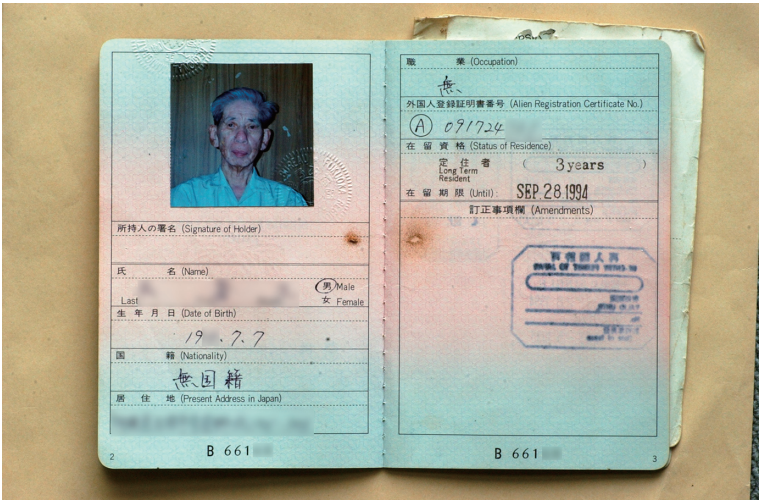 所持人の署名 (Signature of Holder)
氏 名 (Name)
Last
男 Male
女 Female
生年月日 (Date of Birth)
19 .7.7
国 籍 (Nationality)
無国籍
居 住 地 (Present Address in Japan)
B 661
2
職 業 (Occupation)
無
外国人登録証明書番号 (Alien Registration Certificate No.)
A 091724
在 留 資 格 (Status of Residence)
定 住 者
Long Term
Resident
( 3 years )
在 留 期 限 (Until):
SEP. 28. 1994
訂正事項欄 (Amendments)
B 661
3